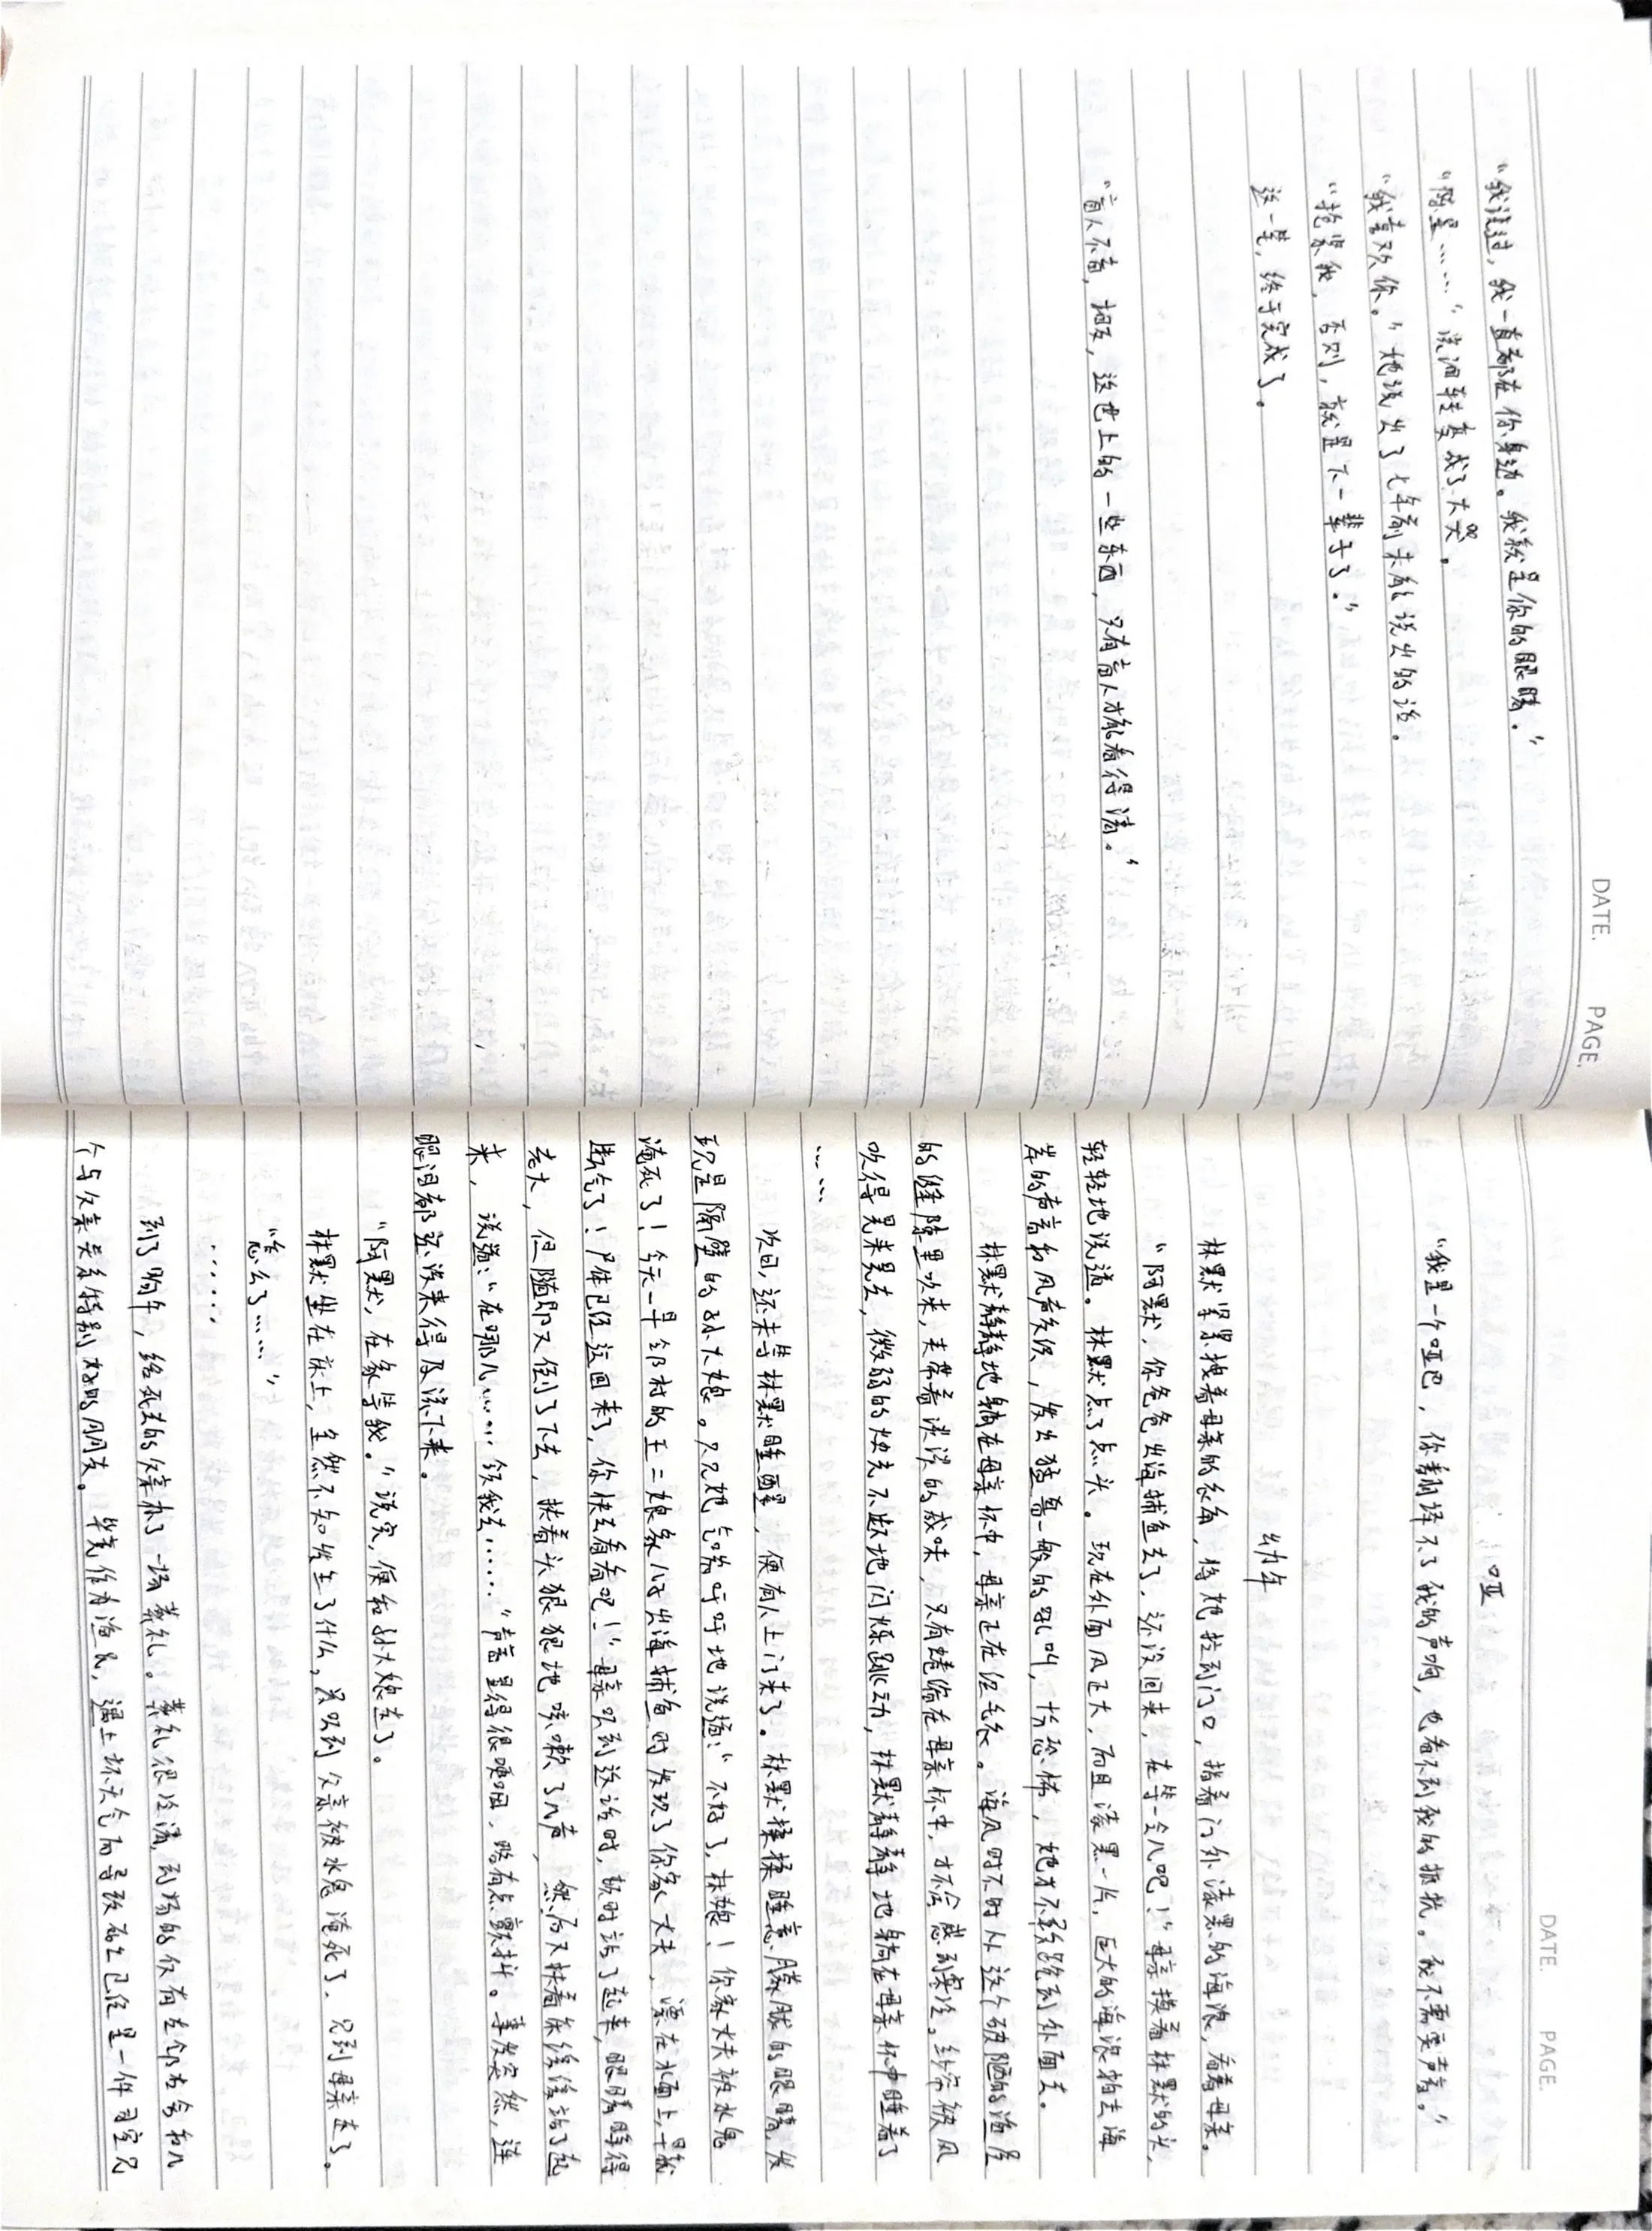 DATE.    PAGE.
“我说过，我一直都在你身边。我就是你的眼睛。”
“陈星……”流泪转变成了大哭。
“我喜欢你。”她说出了七年前未能说出的话。
“抱紧我，否则，就是下一辈子了。”
这一吴，终于完成了。
“盲人不盲，相反，这世上的一些东西，只有盲人才能看得清。”
DATE.    PAGE.
哑
“我是一个哑巴，你翻译不了我的声响，也看不到我的挑扰。我不需要声音。”
幼年
林默紧紧拽着母亲的衣角，将她拉到门口，指着门外漆黑的海浪，看着母亲。
“阿默，你爸爸出海捕鱼去了，还没回来，在等一会儿吧！”母亲摸着林默的头，
轻轻地说道。林默点了点头。现在外面风正大，而且漆黑一片，巨大的海浪拍击海
岸的声音和风声交织，发出猛兽一般的吼叫，十分恐怖，她才不敢跑到外面去。
林默静静地躺在母亲怀中，母亲正在织毛衣。海风时不时从这个破陋的渔屋
的缝隙里吹来，夹带着淡淡的咸味，只有蜷缩在母亲怀中，才不会感到寒冷。窗帘被风
吹得晃来晃去，微弱的烛光不断地闪烁跳动，林默静静地躺在母亲怀中睡着了
……
次日，还未等林默睡醒，便有人上门来了。林默揉揉睡意朦胧的眼睛，发
现是隔壁的孙大娘。只见她气喘吁吁地说道：“不好了，林娘！你家大夫被水鬼
淹死了！今天一早邻村的王二娘家儿子出海捕鱼时发现了你家大夫，漂在水面上，早就
断气了！尸体已经运回来了，你快去看看吧！”母亲听到这话时，顿时站了起来，眼睛睁得
老大，但随即又倒了下去，扶着头狠狠地咳嗽了几声，然后又扶着床缓缓站了起
来，说道：“在哪儿……领我去……”声音显得很哽咽，略有点颤抖。事发突然，连
眼泪都还没来得及流下来。
“阿默，在家等我。”说完，便和孙大娘走了。
林默坐在床上，全然不知发生了什么，只听到父亲被水鬼淹死了，见到母亲走了。
“怎么了……”
……
到了晌午，给死去的父亲办了一场葬礼。葬礼很冷清，到场的仅有左邻右舍和几
个与父亲关系特别好的朋友。毕竟作为渔民，遇上坏天气而导致死亡已经是一件司空见